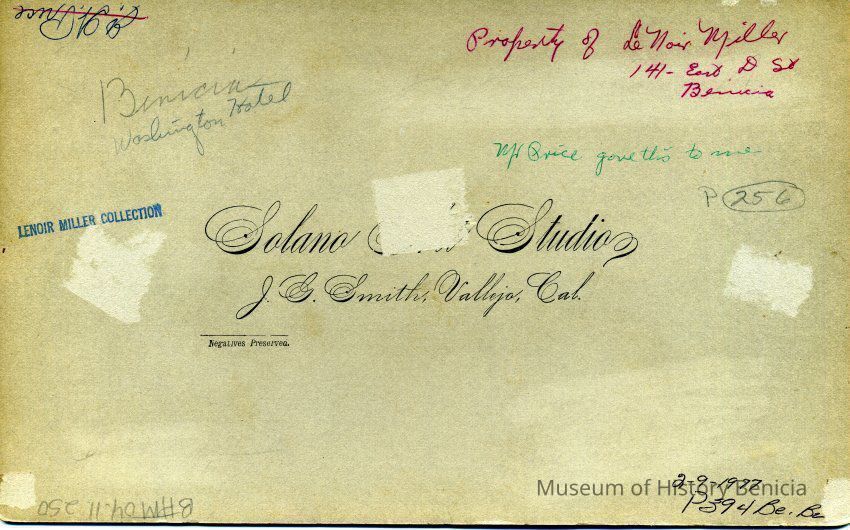 Property of LeNoir Miller
141- East D St
Benicia
Benicia
Washington Hotel
Mr Price gave this to me
P 256
LENOIR MILLER COLLECTION
Solano Studio
J. G. Smith, Vallejo, Cal.
Negatives Preserved.
2-9-1977
Museum of History Benicia
P394 Be. Be
BHM04.11.250